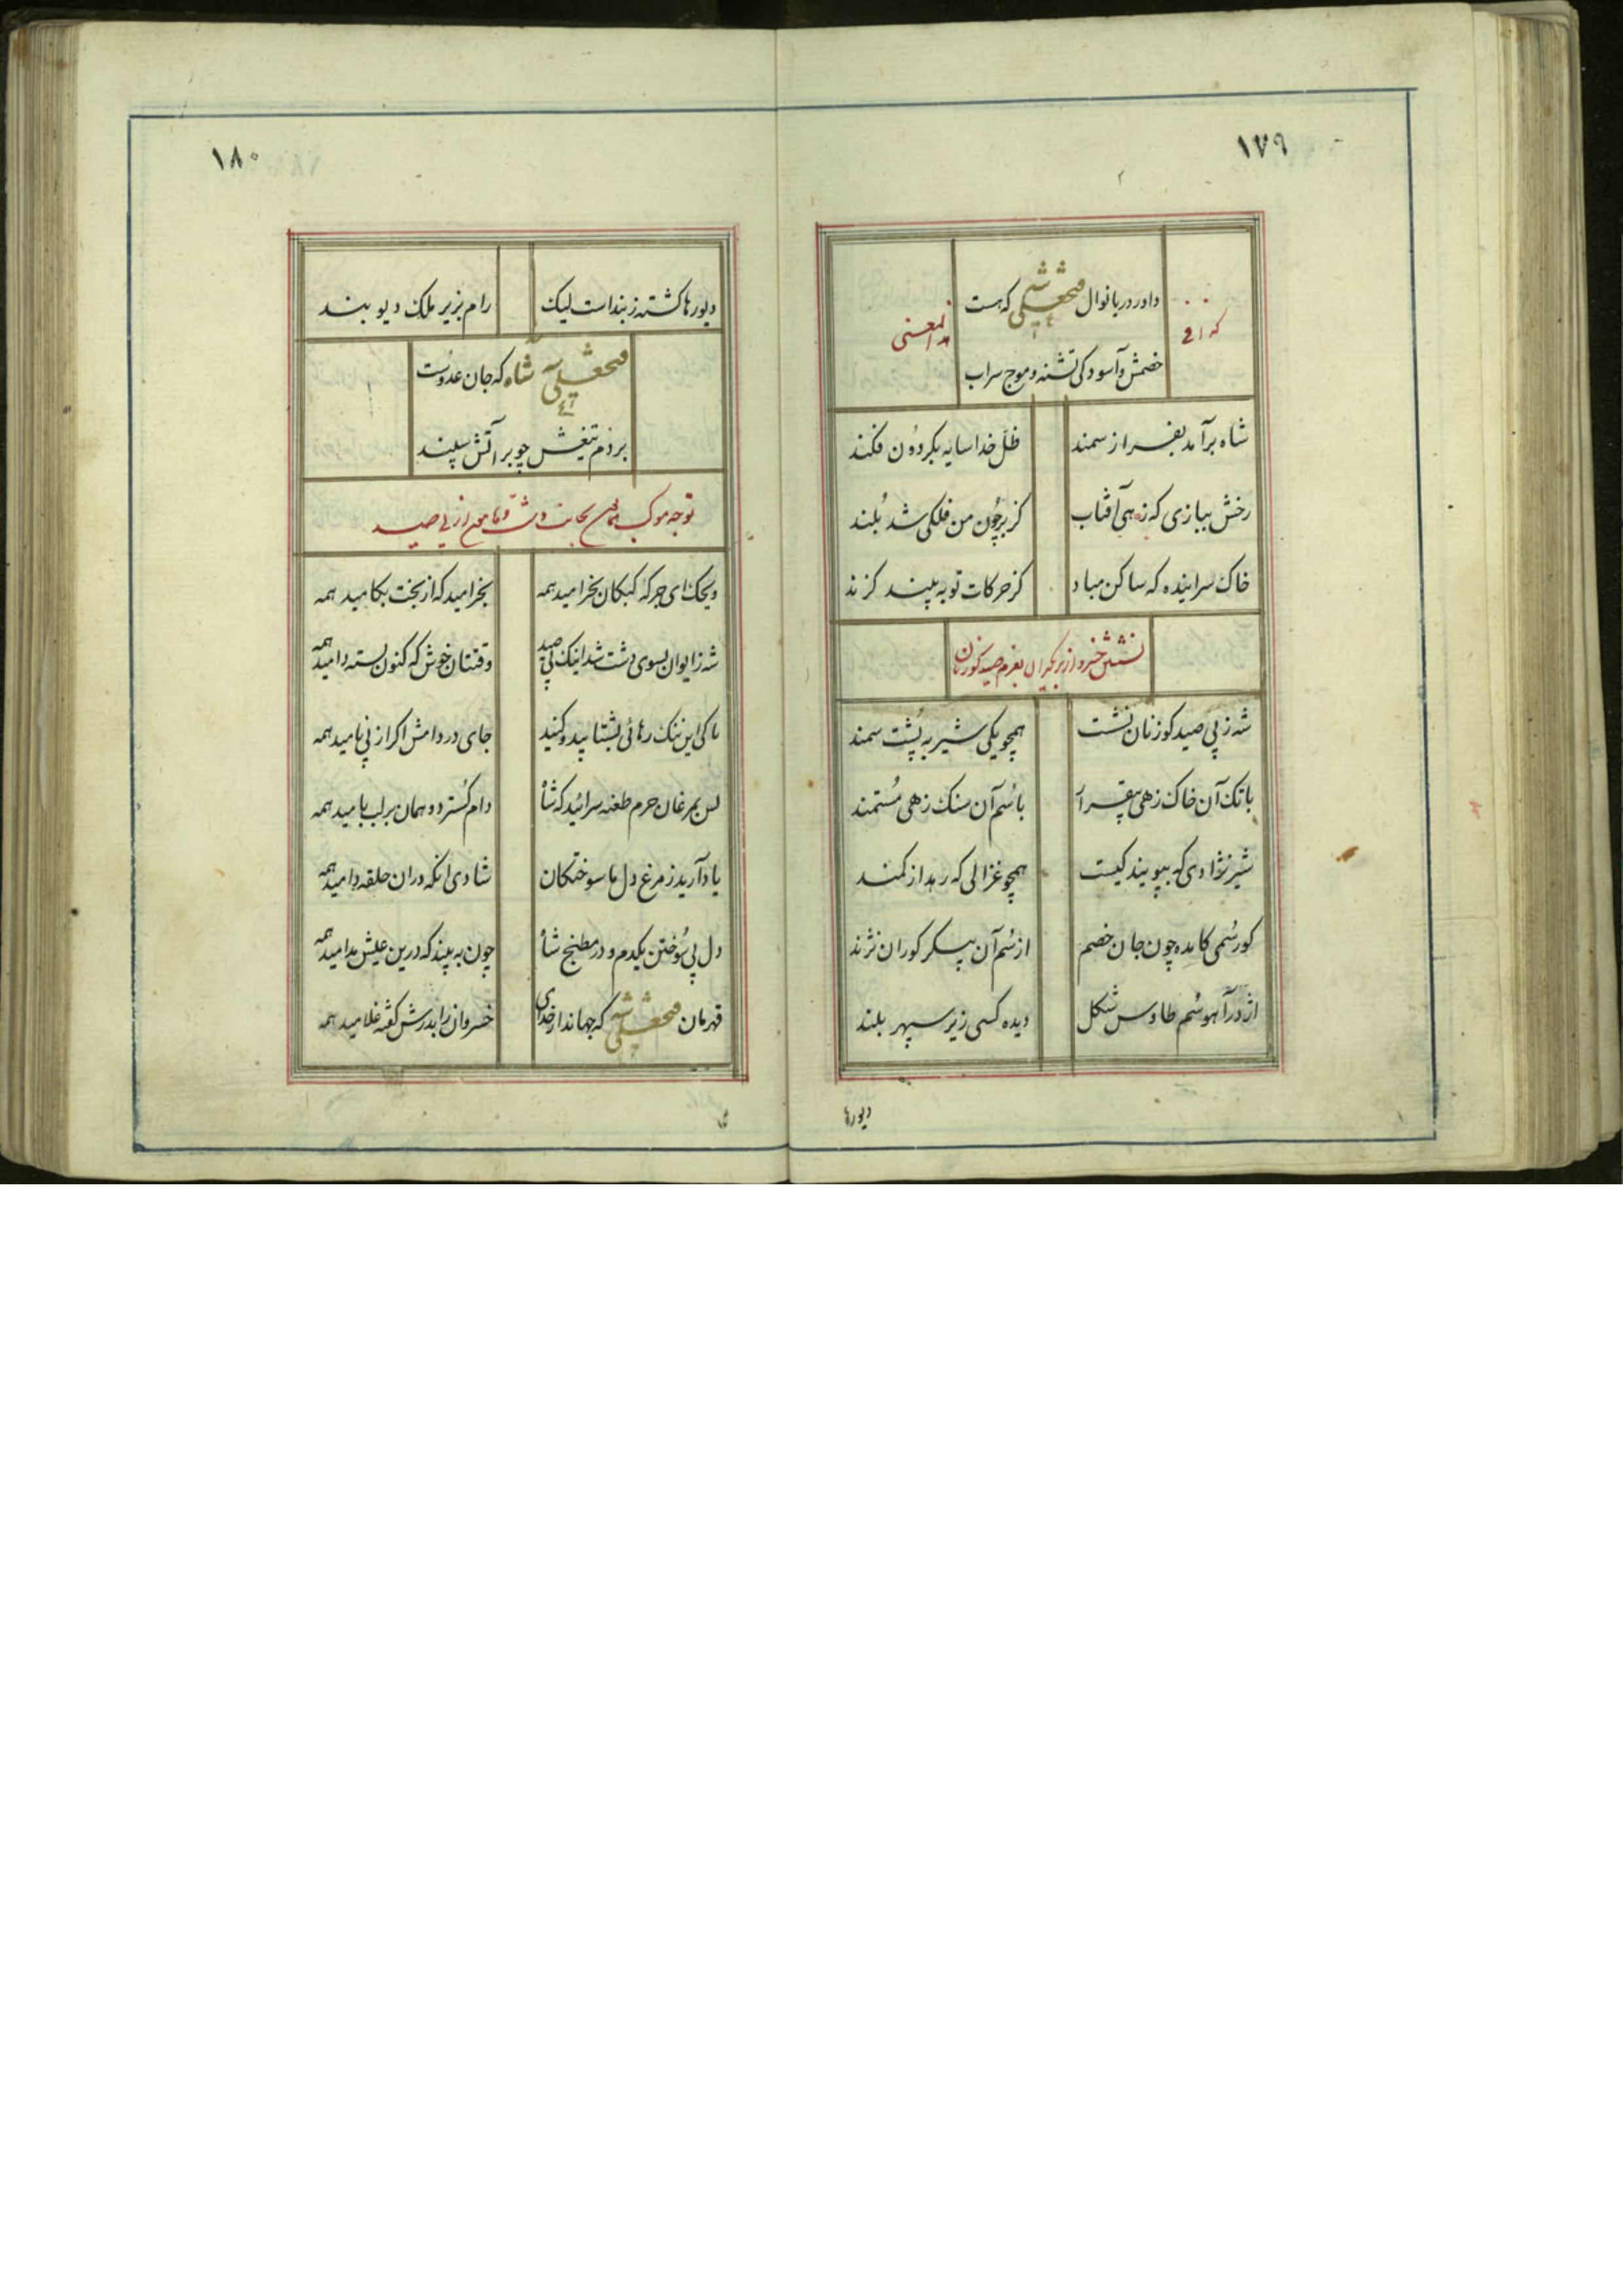 ۱۷۹
داور دریا نوال فتحعلی شه که هست
خصمش و آسودگی تشنه و موج سراب
شاه برآمد بفراز سمند
ظل خدا سایه بگردون فکند
رخش ببازی که زهی آفتاب
کز بر چون من فلکی شد بلند
خاک سراینده که ساکن مباد
کز حرکات تو به بیند کزند
نشستن خسرو از بر یکران بعزم صید کوزنان
شه ز پی صید کوزنان نشست
همچو یکی شیر به پشت سمند
با تک آن خاک زهی بیقرار
با سُم آن سنک زهی مُستمند
شیر نژادی که بپویند کیست
همچو غزالی که رهد از کمند
کورسُمی کامده چون جان خصم
از سُم آن پیکر کوران نژند
اژدر آهو سُم طاوس شکل
دیده کسی زیر سپهر بلند
دیورها
۱۸۰
دیورها کشته ز بند است لیک
رام بزیر ملک دیو بند
فتحعلی شاه که جان عدوست
بر دم تیغش چو بر آتش سپند
توجه موکب بجانب دشت از پی صید
ویحک ای جرکهٔ کبکان بخرامید همه
بخرامید که از بخت بکامید همه
شه ز ایوان بسوی دشت شد اینک پی صید
وقتتان خوش که کنون بسته دامید همه
تا کی این ننک رهائی بشتابید و کنید
جای در دامش اکر از پی نامید همه
پس بمرغان حرم طعنه سرائید که شاه
دام کسترد و همان بر لب بامید همه
یاد آرید ز مرغ دل ما سوختکان
شادی آنکه در آن حلقه دامید همه
دل پی سُوختن یکدم و در مطبخ شاه
چون به بیند که درین عیش مدامید همه
قهرمان فتحعلی شه که جهاندار خدای
خسروان را بدرش کفته غلامید همه